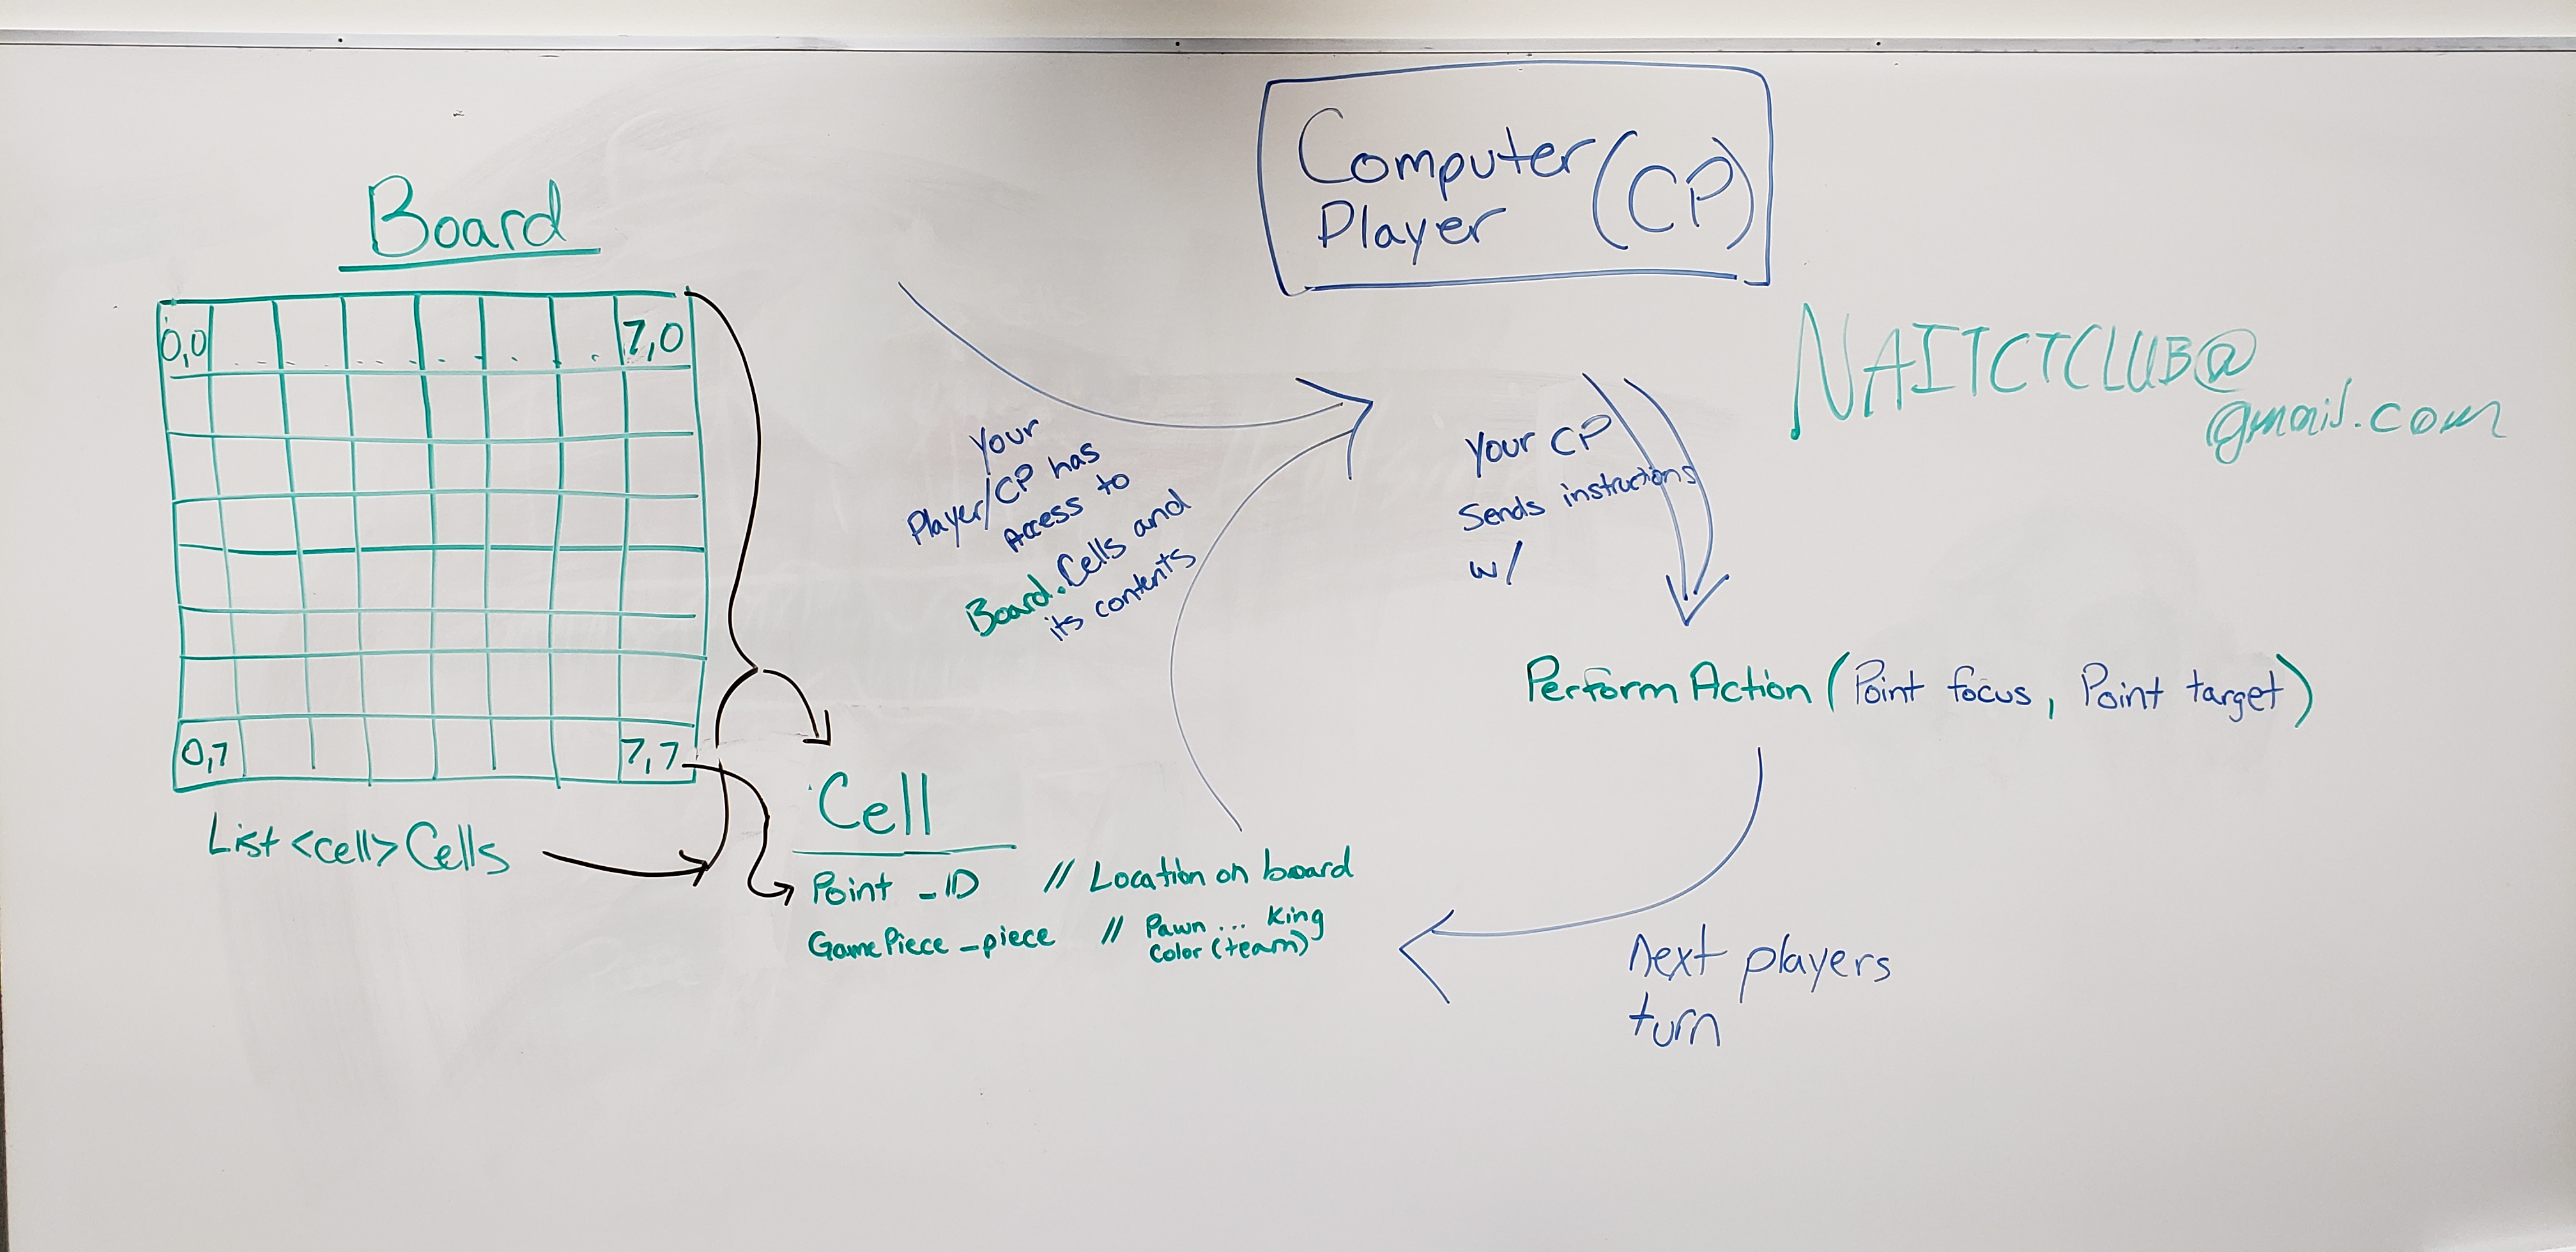 Board
0,0
7,0
0,7
7,7
List <cell> Cells
Cell
Point _ID // Location on board
GamePiece _piece // Pawn ... King
Color (team)
Your
Player/CP has
Access to
Board.Cells and
its contents
Computer
Player (CP)
Your CP
Sends instructions
w/
NAITCTCLUB@
@gmail.com
Perform Action (Point focus, Point target)
next players
turn